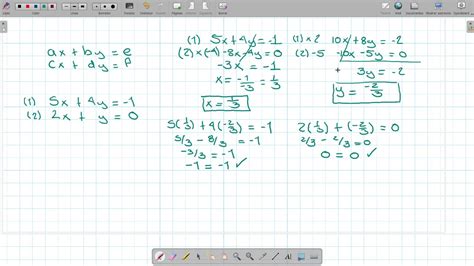 ax + by = e
cx + dy = f
(1) 5x + 4y = -1
(2) 2x + y = 0
(1) 5x + 4y = -1
(2) x(-4) -8x - 4y = 0
-3x = -1
x = -1/-3 = 1/3
x = 1/3
5(1/3) + 4(-2/3) = -1
5/3 - 8/3 = -1
-3/3 = -1
-1 = -1 ✓
(1) x 2 10x + 8y = -2
(2) -5 -10x - 5y = 0
+ 3y = -2
y = -2/3
2(1/3) + (-2/3) = 0
2/3 - 2/3 = 0
0 = 0 ✓